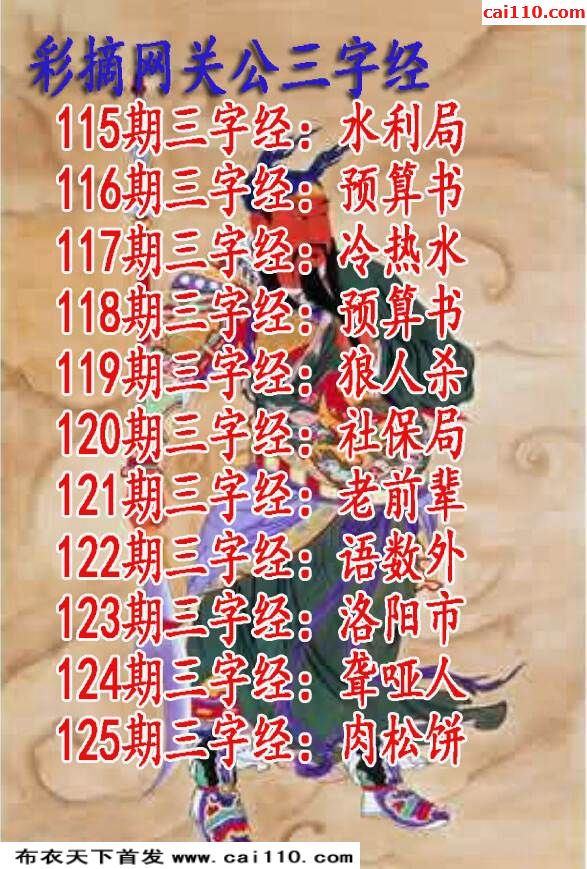 cai110.com
彩摘网关公三字经
115期三字经：水利局
116期三字经：预算书
117期三字经：冷热水
118期三字经：预算书
119期三字经：狼人杀
120期三字经：社保局
121期三字经：老前辈
122期三字经：语数外
123期三字经：洛阳市
124期三字经：聋哑人
125期三字经：肉松饼
布衣天下首发 www.cai110.com